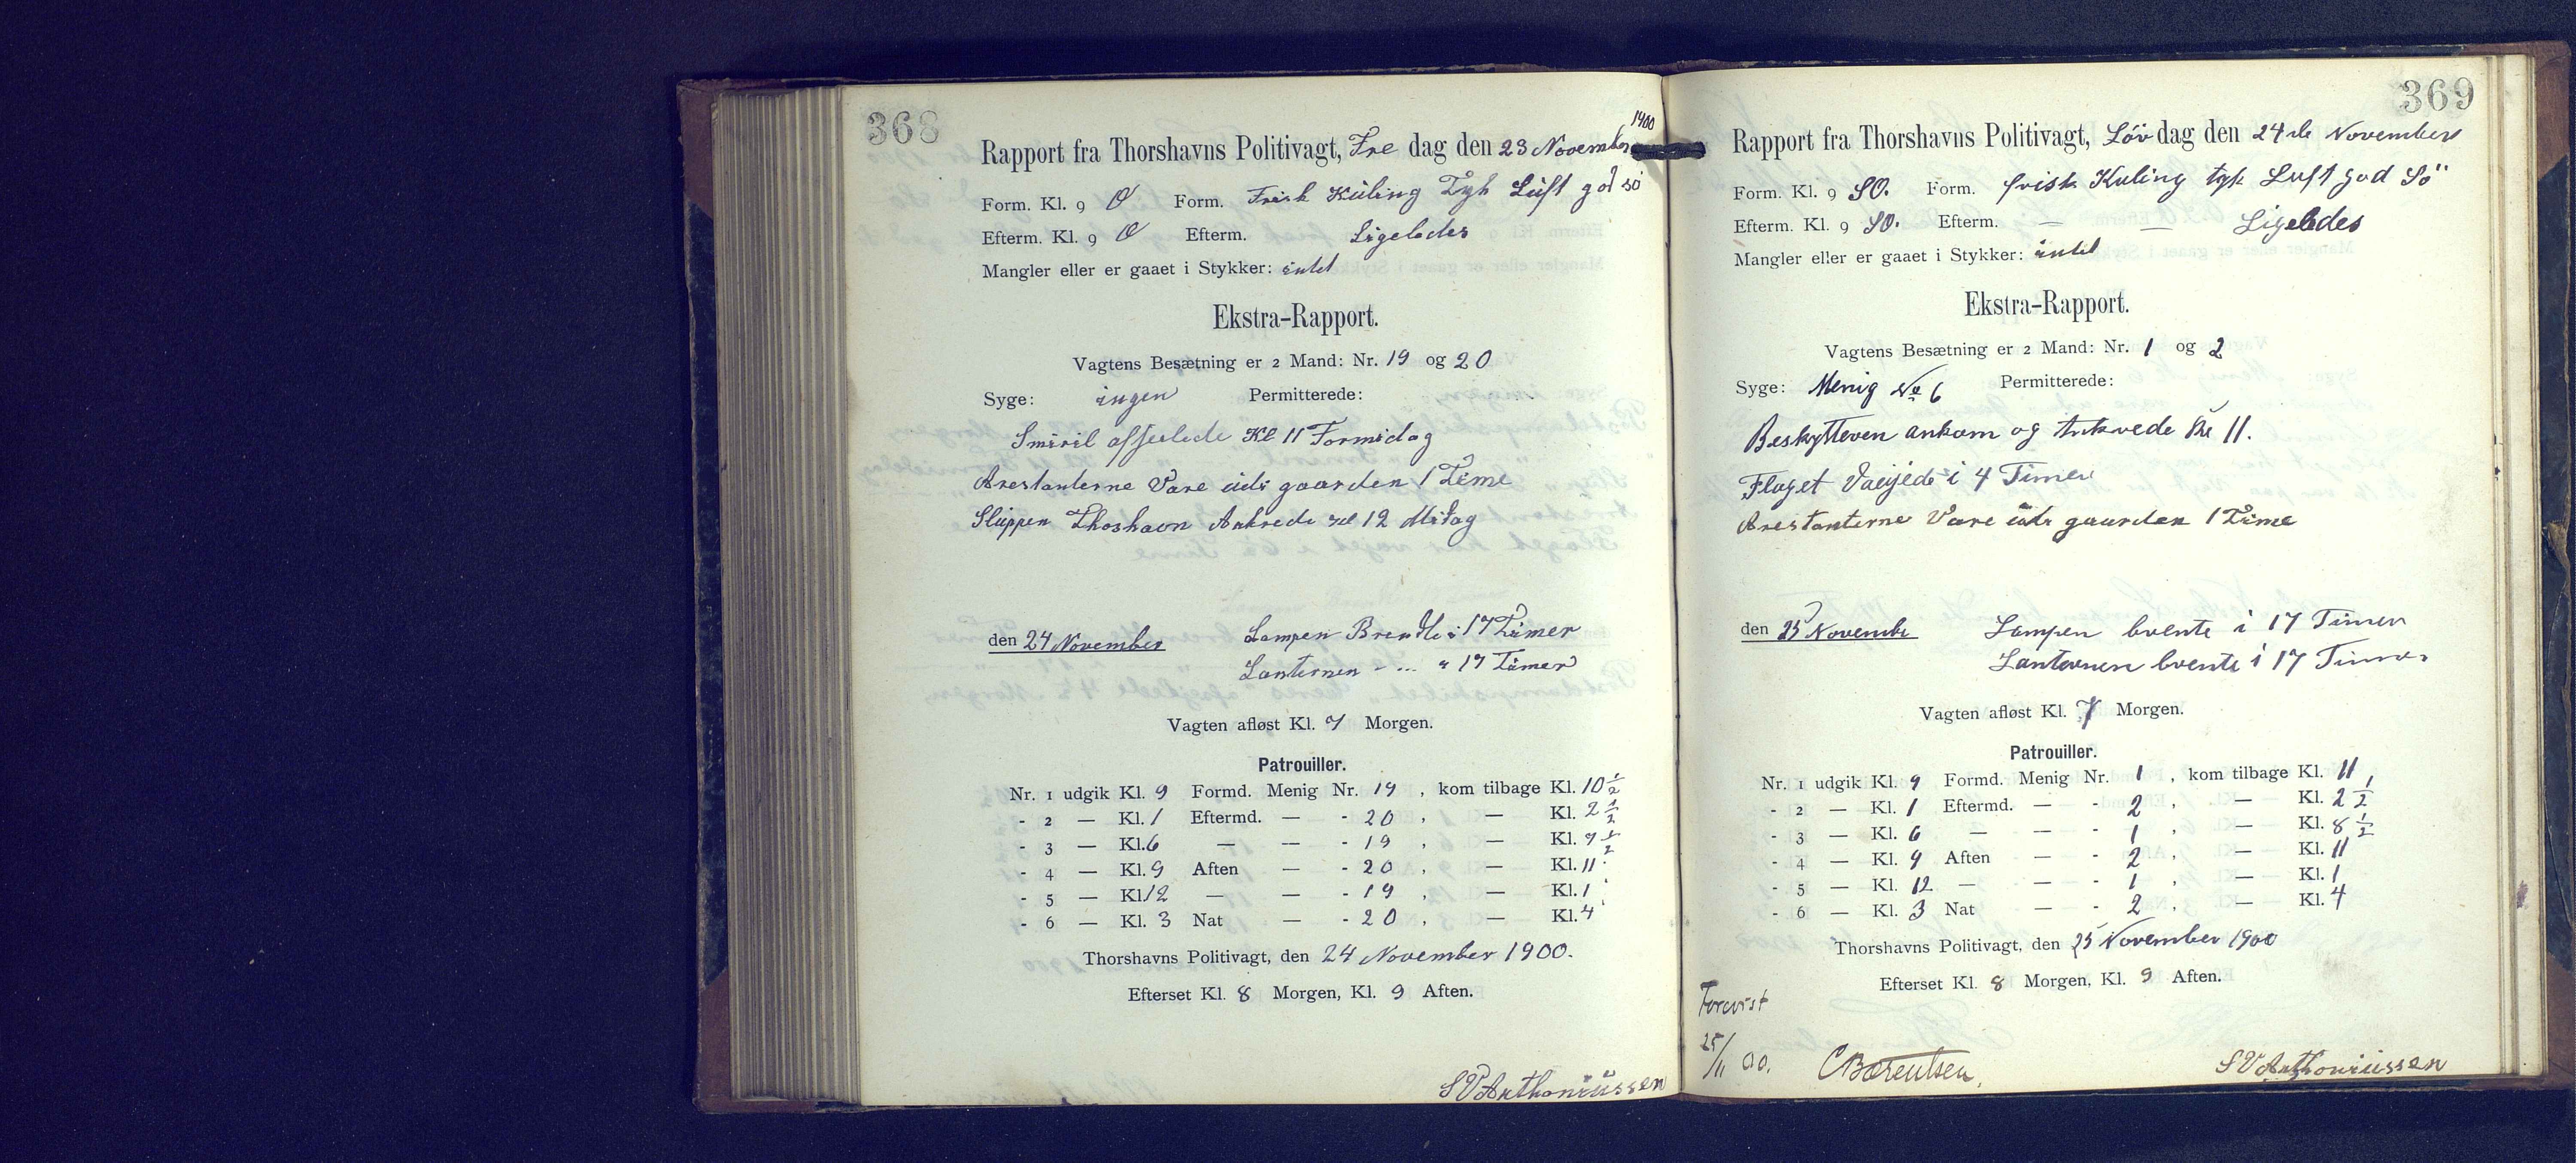 368
1900
Rapport fra Thorshavns Politivagt, Fre dag den 23 November
Form. Kl. 9 O Form. Frisk Kuling Tyk Luft god sö
Efterm. Kl. 9 O Efterm. Ligeledes
Mangler eller er gaaet i Stykker: intet
Ekstra-Rapport.
Vagtens Besætning er 2 Mand: Nr. 19 og 20
Syge: ingen Permitterede:
Smiril afseilede Kl 11 Formidag
Arestanterne Vare udi gaarden 1 Time
Sluppen Thoshavn Ankrede Kl 12 Mitag
den 24 November Lampen Brendte i 17 Timer
Lanternen - ... " 17 Timer
Vagten afløst Kl. 7 Morgen.
Patrouiller.
Nr. 1 udgik Kl. 9 Formd. Menig Nr. 19, kom tilbage Kl. 10 1/2
- 2 — Kl. 1 Eftermd. — - 20, — Kl. 2 1/2
- 3 — Kl. 6 — — - 19, — Kl. 7 1/2
- 4 — Kl. 9 Aften — - 20, — Kl. 11
- 5 — Kl. 12 — — - 19, — Kl. 1
- 6 — Kl. 3 Nat — - 20, — Kl. 4
Thorshavns Politivagt, den 24 November 1900.
Efterset Kl. 8 Morgen, Kl. 9 Aften.
SVAnthoniussen
369
Rapport fra Thorshavns Politivagt, Löv dag den 24de November
Form. Kl. 9 SO. Form. frisk Kuling tyk Luft god Sö
Efterm. Kl. 9 SO. Efterm. — — Ligeledes
Mangler eller er gaaet i Stykker: intet
Ekstra-Rapport.
Vagtens Besætning er 2 Mand: Nr. 1 og 2
Syge: Menig No 6 Permitterede:
Beskytteren ankom og Ankrede Kl 11.
Flaget Vaijede i 4 Timer
Arestanterne Vare udi gaarden 1 Time
den 25 Novembe Lampen brente i 17 Timer
Lanternen brente i 17 Timer
Vagten afløst Kl. 7 Morgen.
Patrouiller.
Nr. 1 udgik Kl. 9 Formd. Menig Nr. 1, kom tilbage Kl. 11
- 2 — Kl. 1 Eftermd. — - 2, — Kl. 2 1/2
- 3 — Kl. 6 — — - 1, — Kl. 8 1/2
- 4 — Kl. 9 Aften — - 2, — Kl. 11
- 5 — Kl. 12 — — - 1, — Kl. 1
- 6 — Kl. 3 Nat — - 2, — Kl. 4
Thorshavns Politivagt, den 25 November 1900
Efterset Kl. 8 Morgen, Kl. 9 Aften.
Forevist
25/11 00. CBærentsen.
SVAnthoniussen